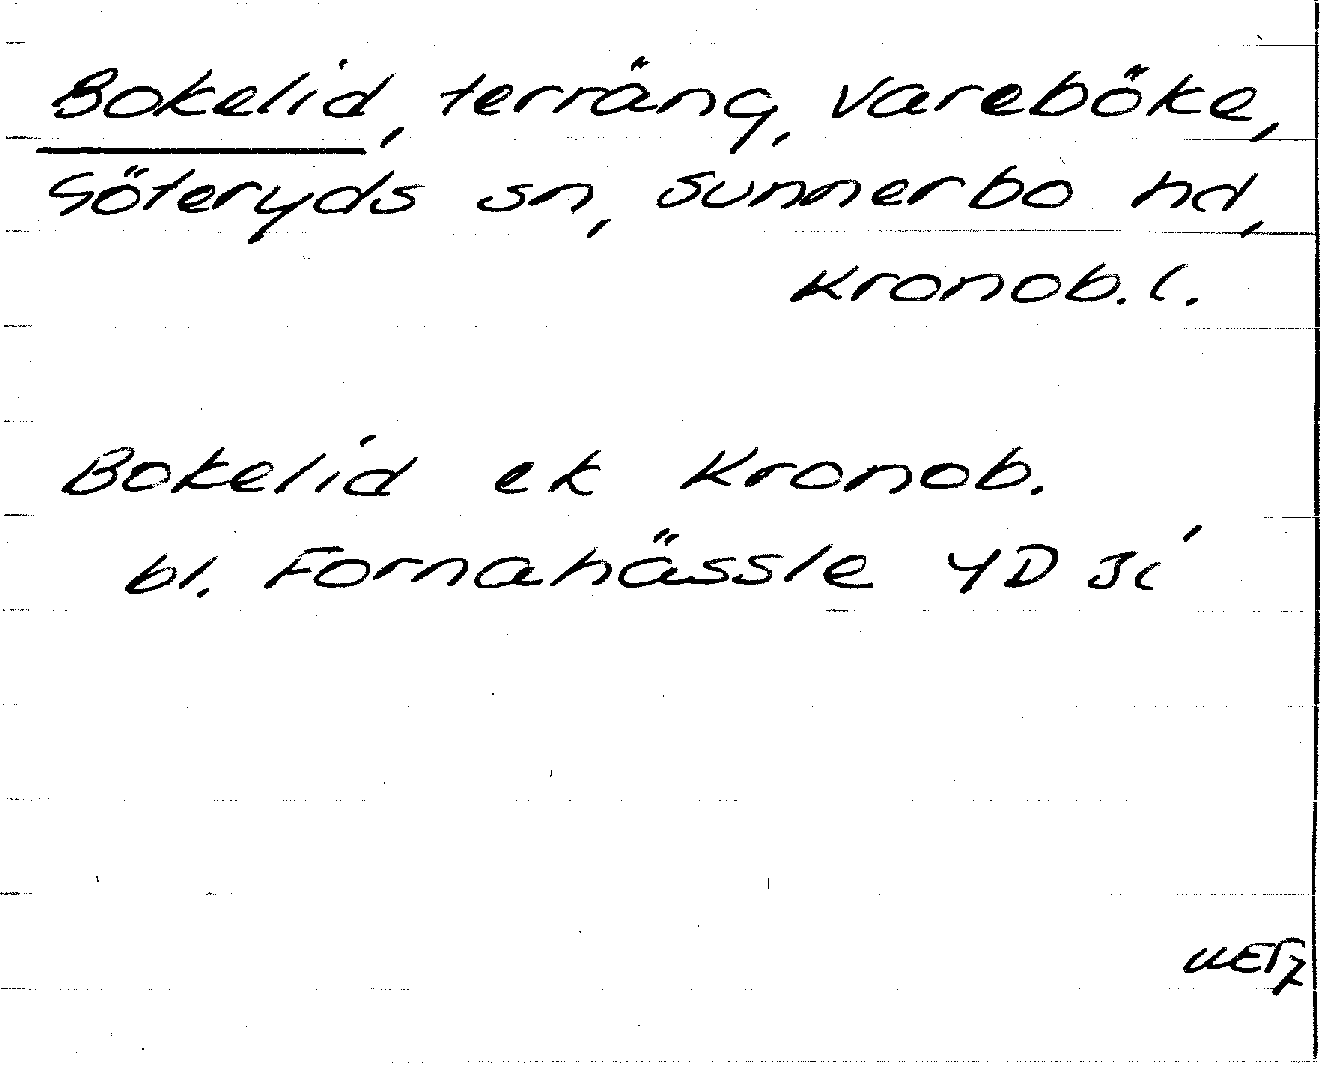 Bokelid, terräng, Vareböke,
Göteryds sn, Sunnerbo hd,
Kronob. l.
Bokelid ek Kronob.
bl. Fornahässle 4D 3i